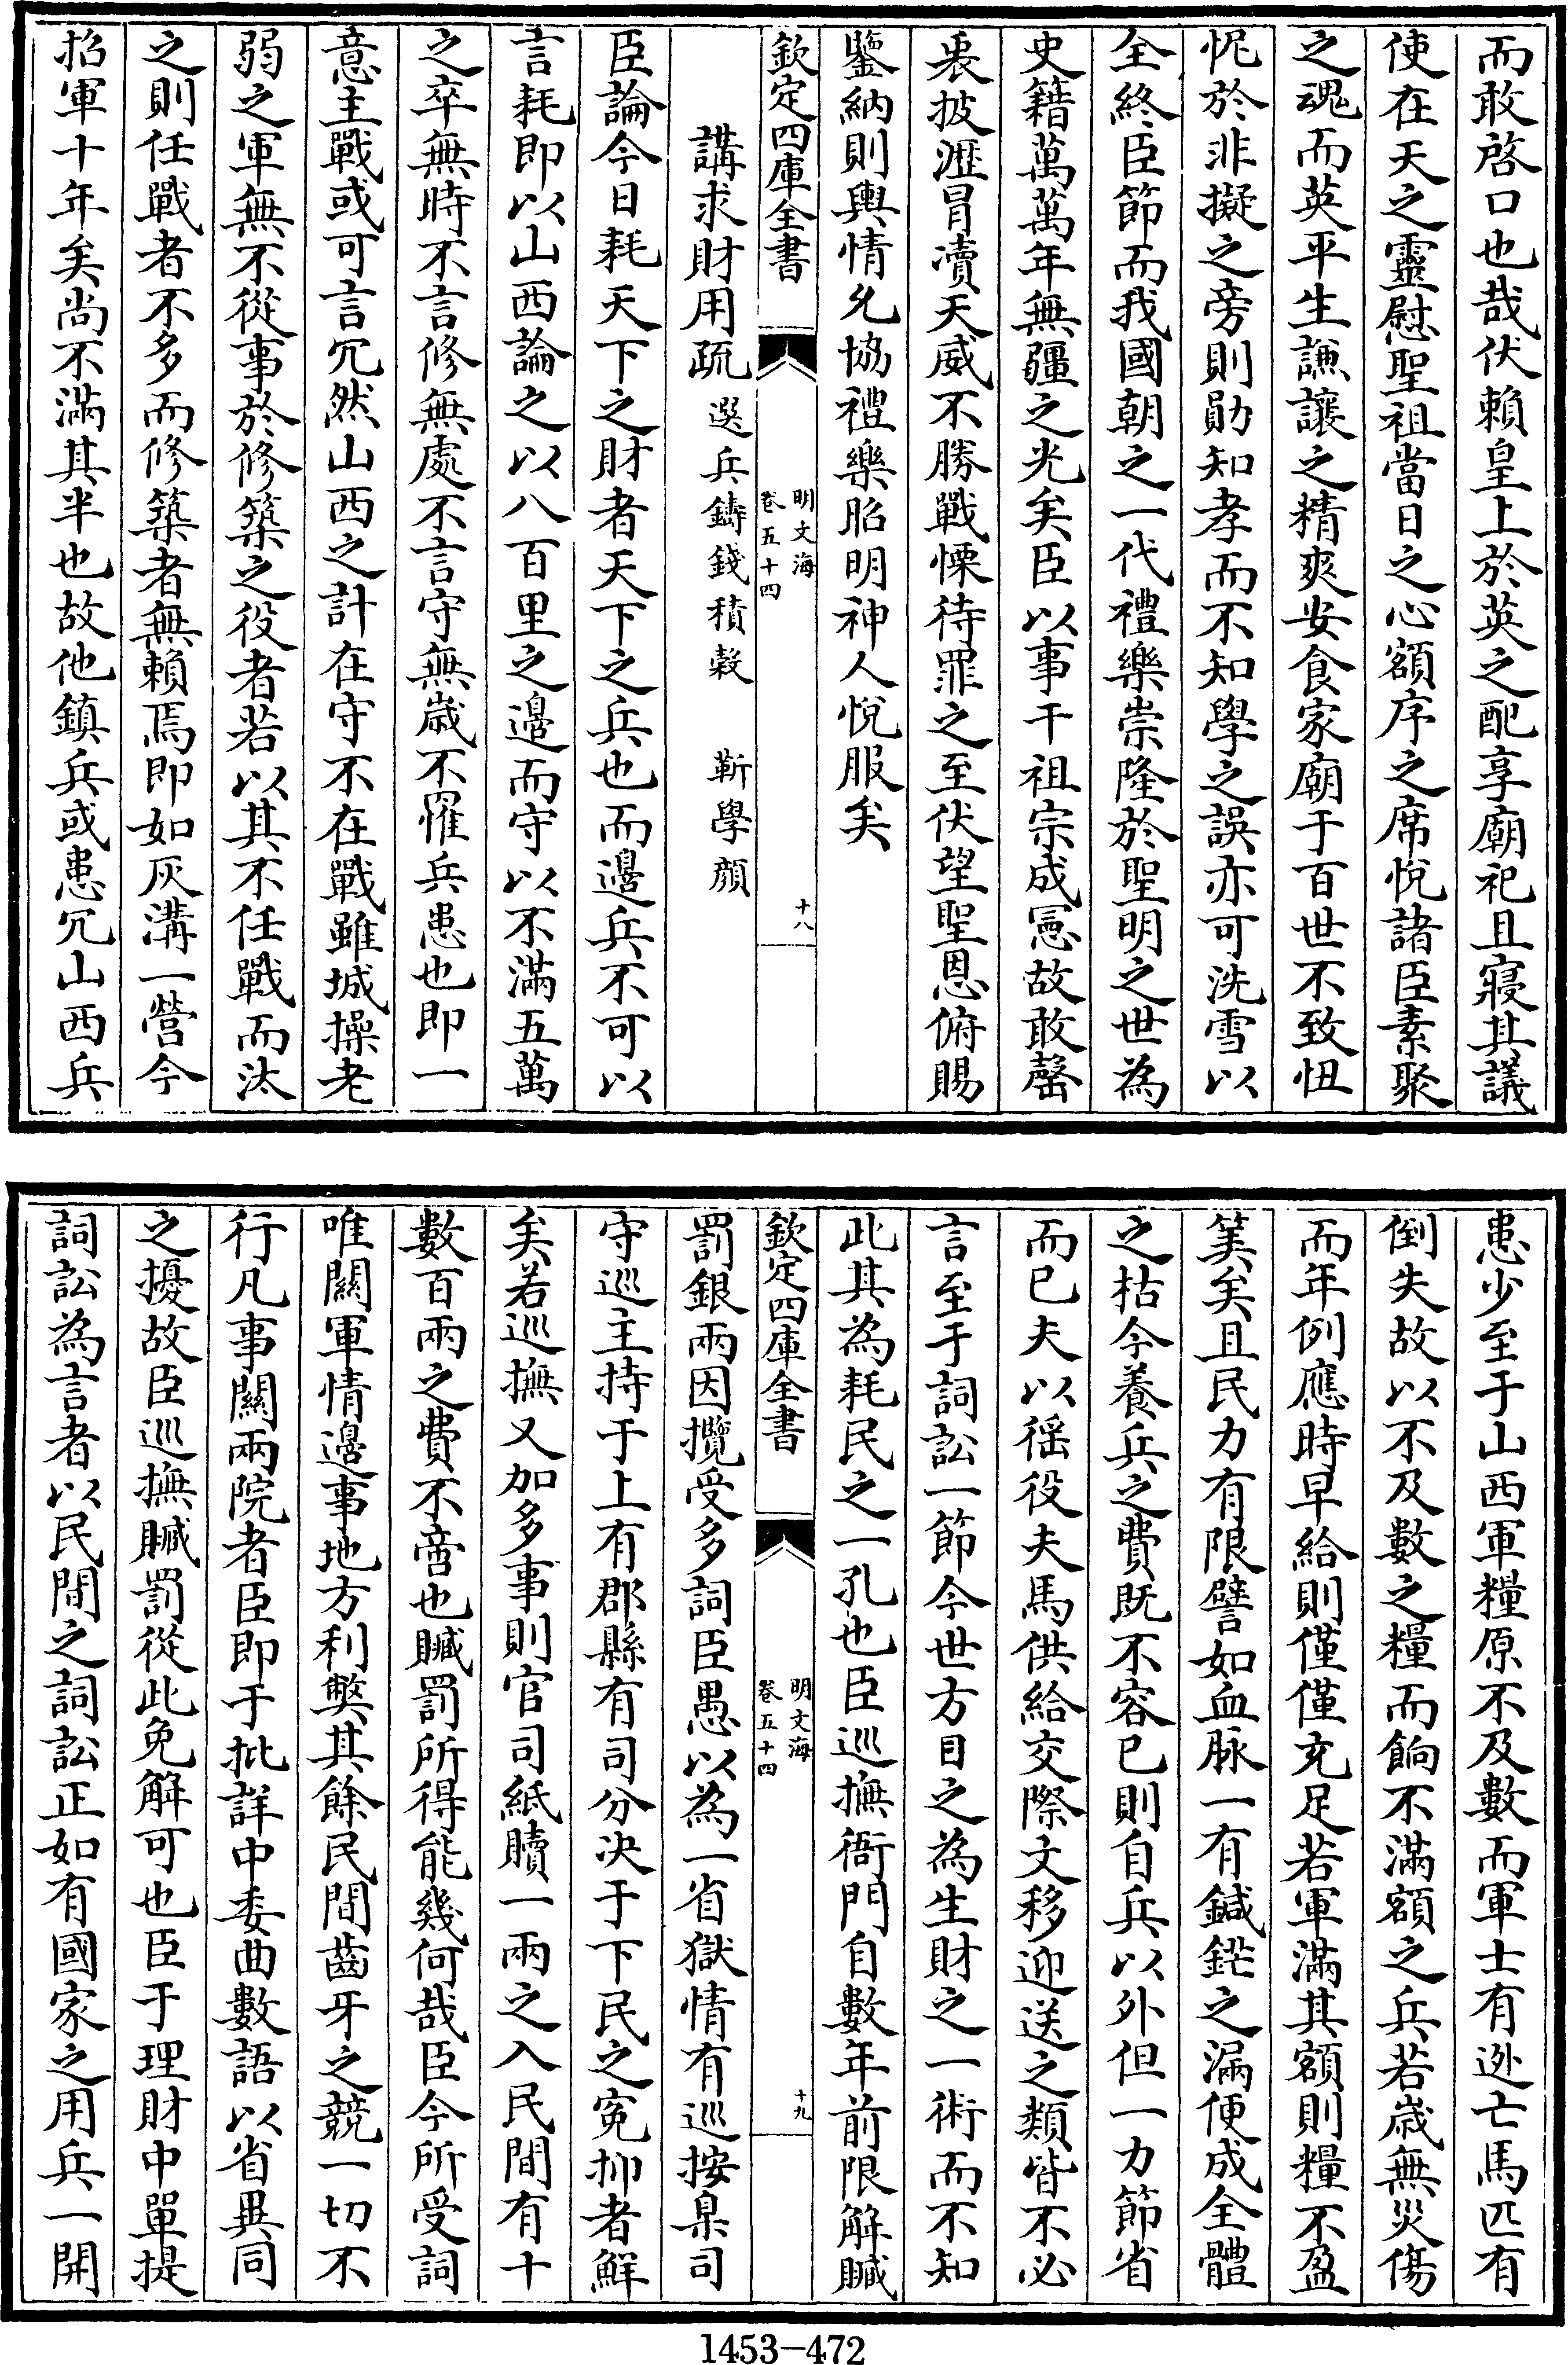 而敢啓口也哉伏賴皇上於英之配享廟祀且寢其議
使在天之靈慰聖祖當日之心額序之席悅諸臣素聚
之魂而英平生謙讓之精爽安食家廟于百世不致忸
怩於非擬之旁則勛知孝而不知學之誤亦可洗雪以
全終臣節而我國朝之一代禮樂崇隆於聖明之世為
史籍萬萬年無疆之光矣臣以事干祖宗成憲故敢罄
衷披瀝冒瀆天威不勝戰慄待罪之至伏望聖恩俯賜
鑒納則輿情允協禮樂昭明神人悅服矣
欽定四庫全書
明文海
卷五十四
十八
講求財用疏 選兵鑄錢積穀 靳學顏
臣論今日耗天下之財者天下之兵也而邊兵不可以
言耗即以山西論之以八百里之邊而守以不滿五萬
之卒無時不言修無處不言守無嵗不罹兵患也即一
意主戰或可言冗然山西之計在守不在戰雖城操老
弱之軍無不從事於修築之役者若以其不任戰而汰
之則任戰者不多而修築者無賴焉即如灰溝一營今
招軍十年矣尚不滿其半也故他鎮兵或患冗山西兵
患少至于山西軍糧原不及數而軍士有逃亡馬匹有
倒失故以不及數之糧而餉不滿額之兵若嵗無災傷
而年例應時早給則僅僅充足若軍滿其額則糧不盈
筭矣且民力有限譬如血脉一有鍼鋩之漏便成全體
之枯今養兵之費既不容已則自兵以外但一力節省
而已夫以徭役夫馬供給交際文移迎送之類皆不必
言至于詞訟一節今世方目之為生財之一術而不知
此其為耗民之一孔也臣巡撫衙門自數年前限解贓
欽定四庫全書
明文海
卷五十四
十九
罰銀兩因攬受多詞臣愚以為一省獄情有巡按臬司
守巡主持于上有郡縣有司分决于下民之寃抑者鮮
矣若巡撫又加多事則官司紙贖一兩之入民間有十
數百兩之費不啻也贓罰所得能幾何哉臣今所受詞
唯關軍情邊事地方利弊其餘民間齒牙之競一切不
行凡事關兩院者臣即于批詳中委曲數語以省異同
之擾故臣巡撫贓罰從此免解可也臣于理財中單提
詞訟為言者以民間之詞訟正如有國家之用兵一開
1453-472